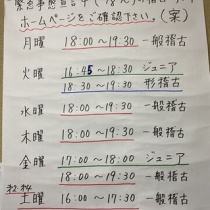 緊急事態宣言中
ホームページをご確認下さい。(宋)
月曜 18:00〜19:30 一般稽古
火曜 16:45〜18:30 ジュニア
18:30〜19:30 形稽古
水曜 18:00〜19:30 一般稽古
木曜 18:00〜19:30 一般稽古
金曜 17:00〜18:00 ジュニア
18:00〜19:30 一般稽古
土曜 16:00〜17:30 一般稽古